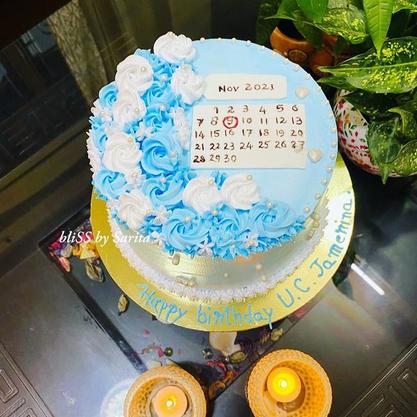 Nov 2021
1 2 3 4 5 6
7 8 9 10 11 12 13
14 15 16 17 18 19 20
21 22 23 24 25 26 27
28 29 30
bliSS by Sarita
Happy birthday U.C. Jamenina